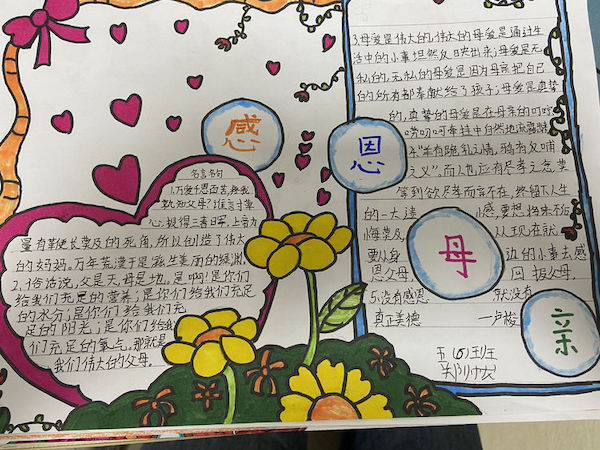 感
恩
母
亲
名言名句
1.万爱千恩百苦,疼我
孰知父母?谁言寸草
心,报得三春晖。上帝为
有鞭长莫及的死角,所以创造了伟大
的妈妈。万年荒漠于是滋生美丽的绿洲。
2.俗话说,父是天,母是地。是啊!是你们
给我们充足的营养;是你们给我们充足
的水分;是你们给我们充
足的阳光;是你们给我
们充足的氧气。那就是
我们伟大的父母。
3.母爱是伟大的,伟大的母爱是通过生
活中的小事坦然反映出来;母爱是无
私的,无私的母爱是因为母亲把自己
的所有都奉献给了孩子;母爱是真挚
的,真挚的母爱是在母亲的叮咛
唠叨呵牵挂中自然地流露
4."羊有跪乳之情,鸦有反哺
之义",而人也应有尽孝之念,莫
等到欲尽孝而言不在,终留下人生
的一大遗憾,要想将来不
悔莫及 从现在就
要从身边的小事去感
恩父母 回报父母。
5.没有感恩 就没有
真正美德 一卢梭
五(6)班